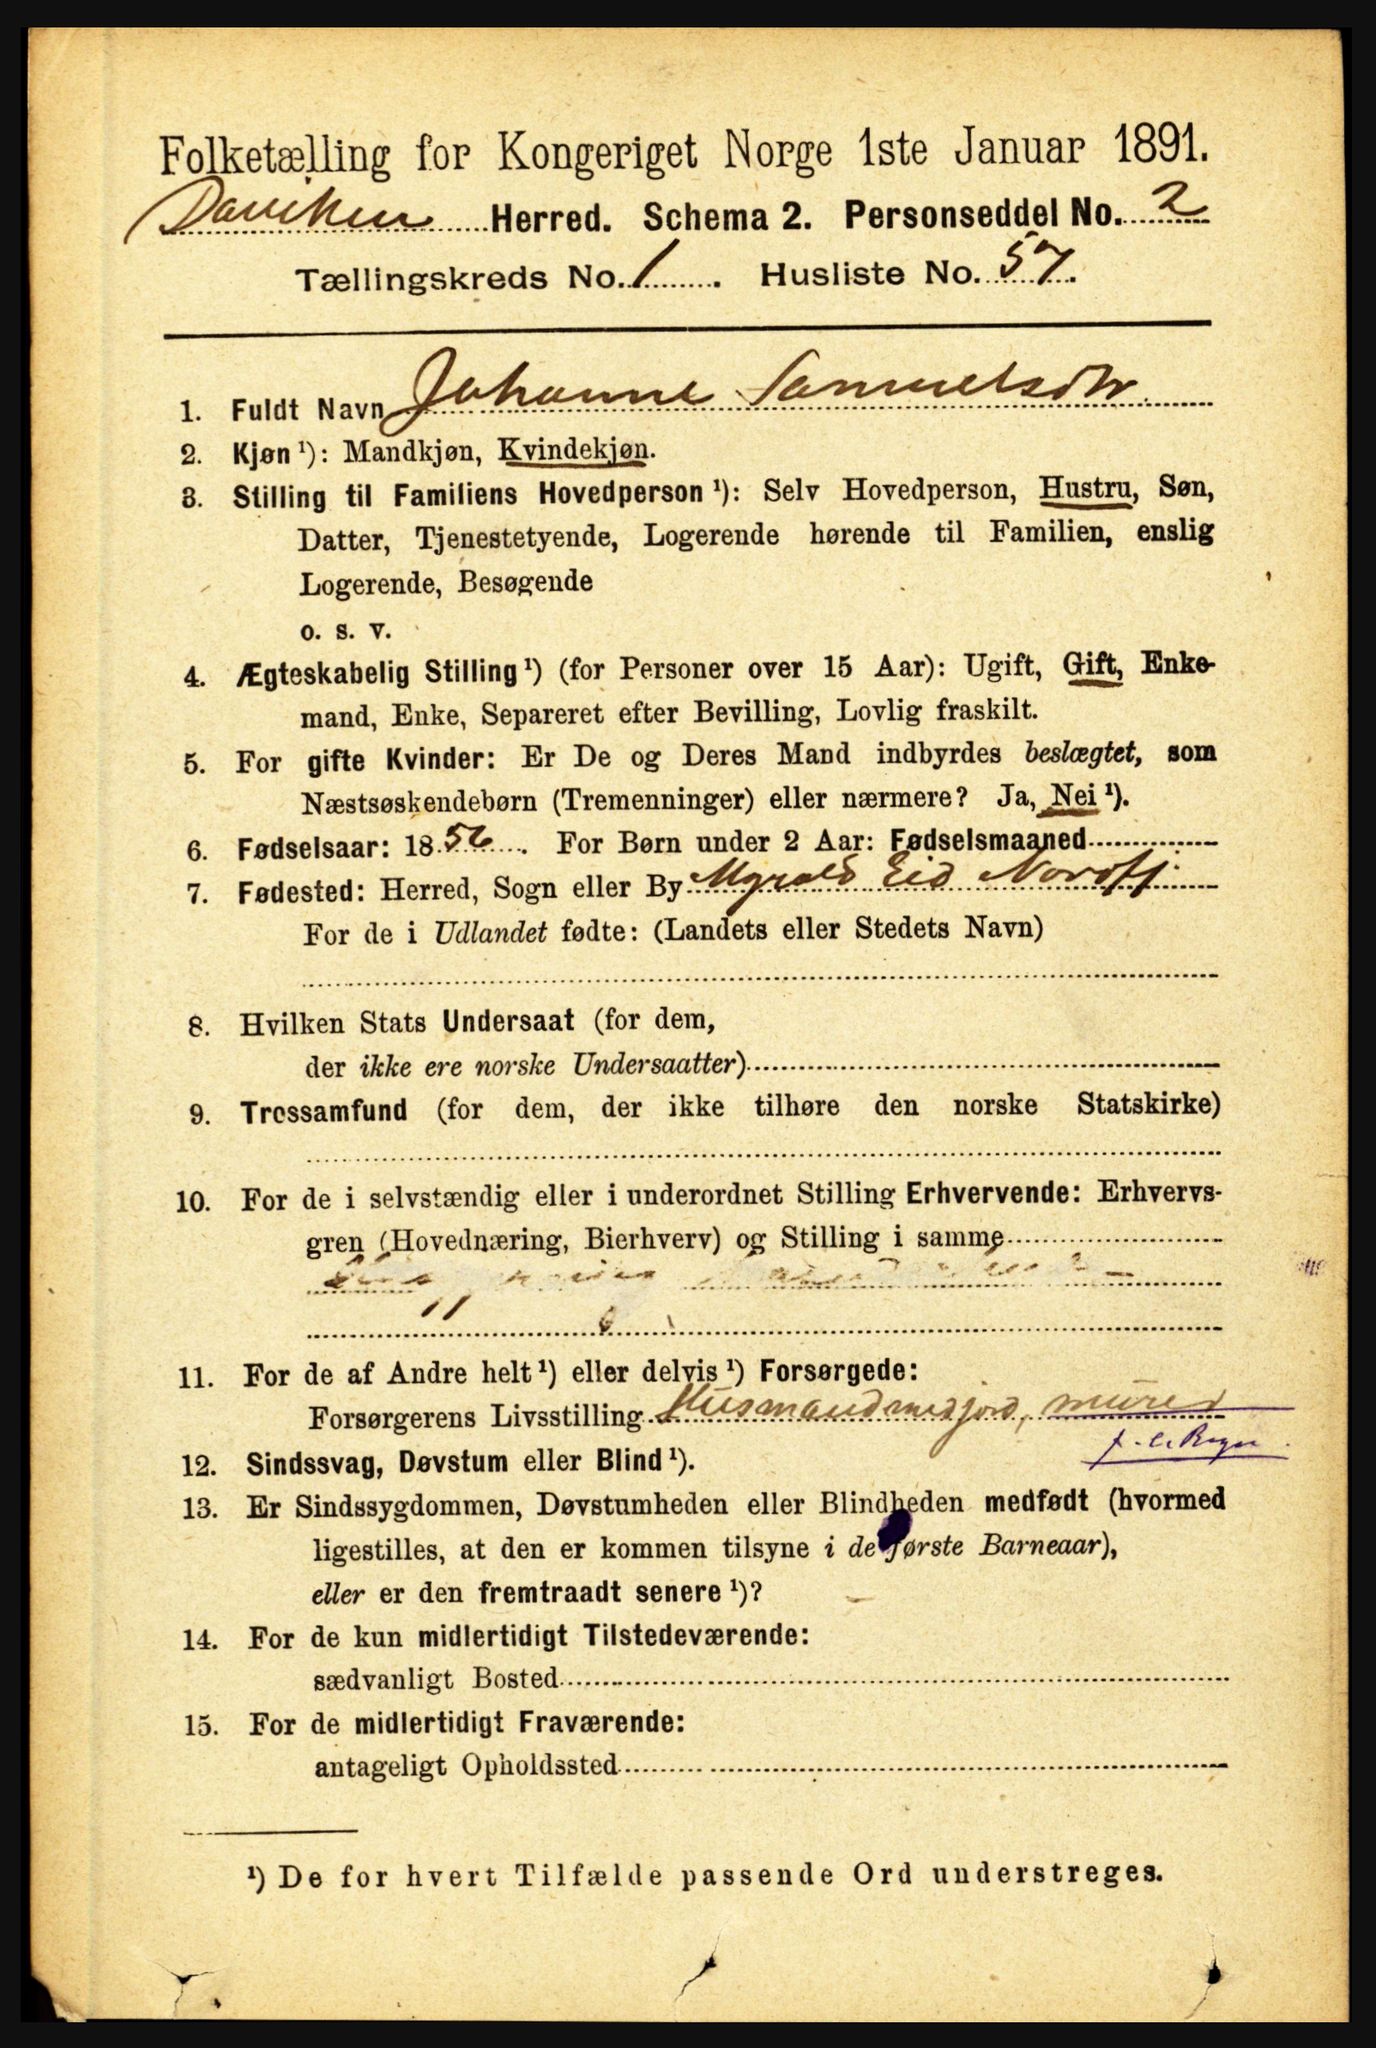 Folketælling for Kongeriget Norge 1ste Januar 1891.
Daviken Herred. Schema 2. Personseddel No. 2
Tællingskreds No. 1. Husliste No. 57.
1. Fuldt Navn Johanne Samuelsdtr.
2. Kjøn ¹): Mandkjøn, Kvindekjøn.
3. Stilling til Familiens Hovedperson ¹): Selv Hovedperson, Hustru, Søn,
Datter, Tjenestetyende, Logerende hørende til Familien, enslig
Logerende, Besøgende
o. s. v.
4. Ægteskabelig Stilling ¹) (for Personer over 15 Aar): Ugift, Gift, Enke-
mand, Enke, Separeret efter Bevilling, Lovlig fraskilt.
5. For gifte Kvinder: Er De og Deres Mand indbyrdes beslægtet, som
Næstsøskendebørn (Tremenninger) eller nærmere? Ja, Nei ¹).
6. Fødselsaar: 1856. For Børn under 2 Aar: Fødselsmaaned
7. Fødested: Herred, Sogn eller By Myrold Eid Nordfj
For de i Udlandet fødte: (Landets eller Stedets Navn)
8. Hvilken Stats Undersaat (for dem,
der ikke ere norske Undersaatter)
9. Trossamfund (for dem, der ikke tilhøre den norske Statskirke)
10. For de i selvstændig eller i underordnet Stilling Erhvervende: Erhvervs-
gren (Hovednæring, Bierhverv) og Stilling i samme
11. For de af Andre helt ¹) eller delvis ¹) Forsørgede:
Forsørgerens Livsstilling Husmand med jord, murer
12. Sindssvag, Døvstum eller Blind ¹).
13. Er Sindssygdommen, Døvstumheden eller Blindheden medfødt (hvormed
ligestilles, at den er kommen tilsyne i de første Barneaar),
eller er den fremtraadt senere ¹)?
14. For de kun midlertidigt Tilstedeværende:
sædvanligt Bosted
15. For de midlertidigt Fraværende:
antageligt Opholdssted
¹) De for hvert Tilfælde passende Ord understreges.